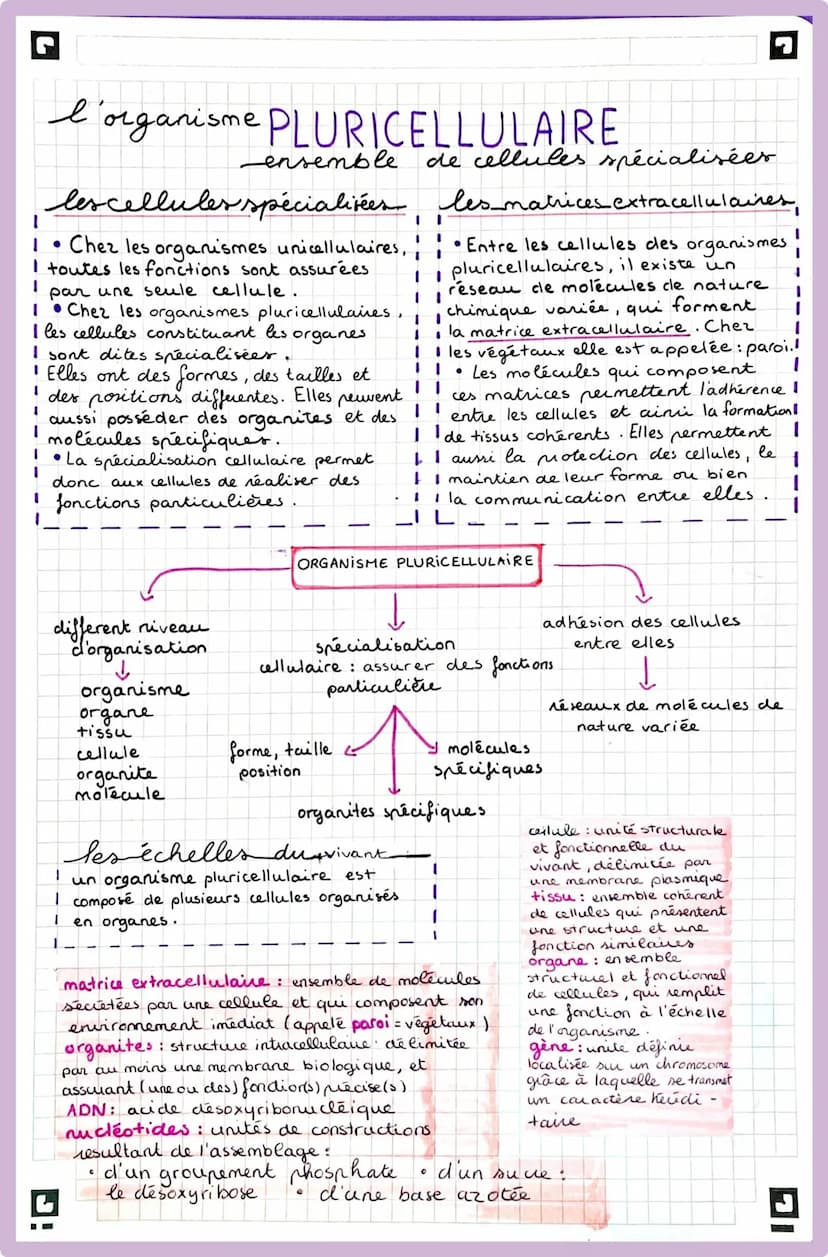 l'organisme PLURICELLULAIRE
ensemble de cellules spécialisées
les cellules spécialisées
• Chez les organismes unicellulaires,
toutes les fonctions sont assurées
par une seule cellule.
• Chez les organismes pluricellulaires,
les cellules constituant les organes
sont dites spécialisées.
Elles ont des formes, des tailles et
des positions differentes. Elles peuvent
aussi posséder des organites et des
molécules spécifiques.
• La spécialisation cellulaire permet
donc aux cellules de réaliser des
fonctions particulières.
les matrices extracellulaires
• Entre les cellules des organismes
pluricellulaires, il existe un
réseau de molécules de nature
chimique variée, qui forment
la matrice extracellulaire. Chez
les végétaux elle est appelée : paroi.
• Les molécules qui composent
ces matrices permettent l'adhérence
entre les cellules et ainsi la formation
de tissus cohérents. Elles permettent
aussi la protection des cellules, le
maintien de leur forme ou bien
la communication entre elles.
ORGANISME PLURICELLULAIRE
different niveau
d'organisation
organisme
organe
tissu
cellule
organite
molécule
spécialisation
cellulaire : assurer des fonctions
particulière
forme, taille
position
organites spécifiques
molécules
spécifiques
adhésion des cellules
entre elles
réseaux de molécules de
nature variée
les échelles du vivant
un organisme pluricellulaire est
composé de plusieurs cellules organisés
en organes.
cellule : unité structurale
et fonctionnelle du
vivant, délimitée par
une membrane plasmique
tissu : ensemble cohérent
de cellules qui présentent
une structure et une
fonction similaires
organe : ensemble
structurel et fonctionnel
de cellules, qui remplit
une fonction à l'échelle
de l'organisme.
gène : unité définie
localisée sur un chromosome
grâce à laquelle se transmet
un caractère hérédi-
taire
matrice extracellulaire : ensemble de molécules
sécrétées par une cellule et qui composent son
environnement imédiat (appelé paroi = végétaux)
organites : structure intracellulaire délimitée
par au moins une membrane biologique, et
assurant (une ou des) fonction(s) précise(s)
ADN : acide désoxyribonucléique
nucléotides : unités de constructions
résultant de l'assemblage :
• d'un groupement phosphate • d'un sucre :
le désoxyribose • d'une base azotée